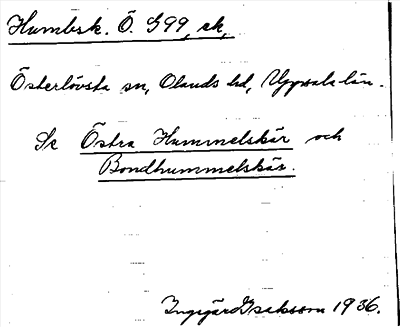 Humbsk. Ö. G99, ak,
Österlövsta sn, Olands hd, Uppsala län.
Se Östra Hummelskär och
Bondhummelskär.
Ingegärd Isaksson 1936.